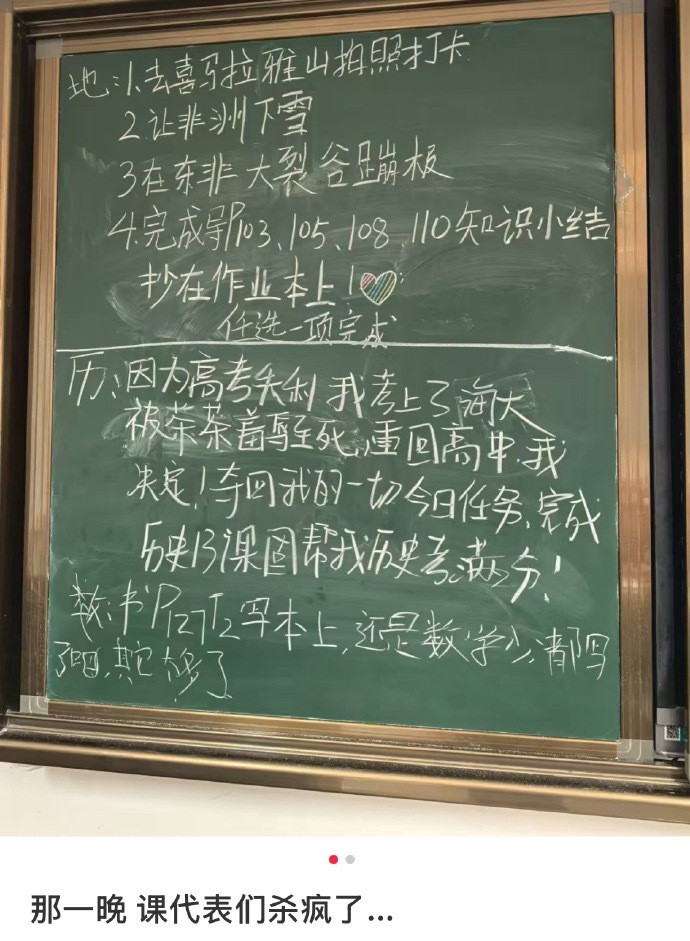 地:1.去喜马拉雅山拍照打卡
2让非洲下雪
3在东非大裂谷蹦极
4.完成导P103、105、108、110知识小结
抄在作业本上!
任选一项完成
历:因为高考失利我考上了海大
被茶茶蓄到死,重回高中,我
决定!夺回我的一切今日任务,完成
历史13课因帮我历史考满分!
数:书P127T2写本上,还是数学少,请阳
了吧,其它太多了
那一晚 课代表们杀疯了...